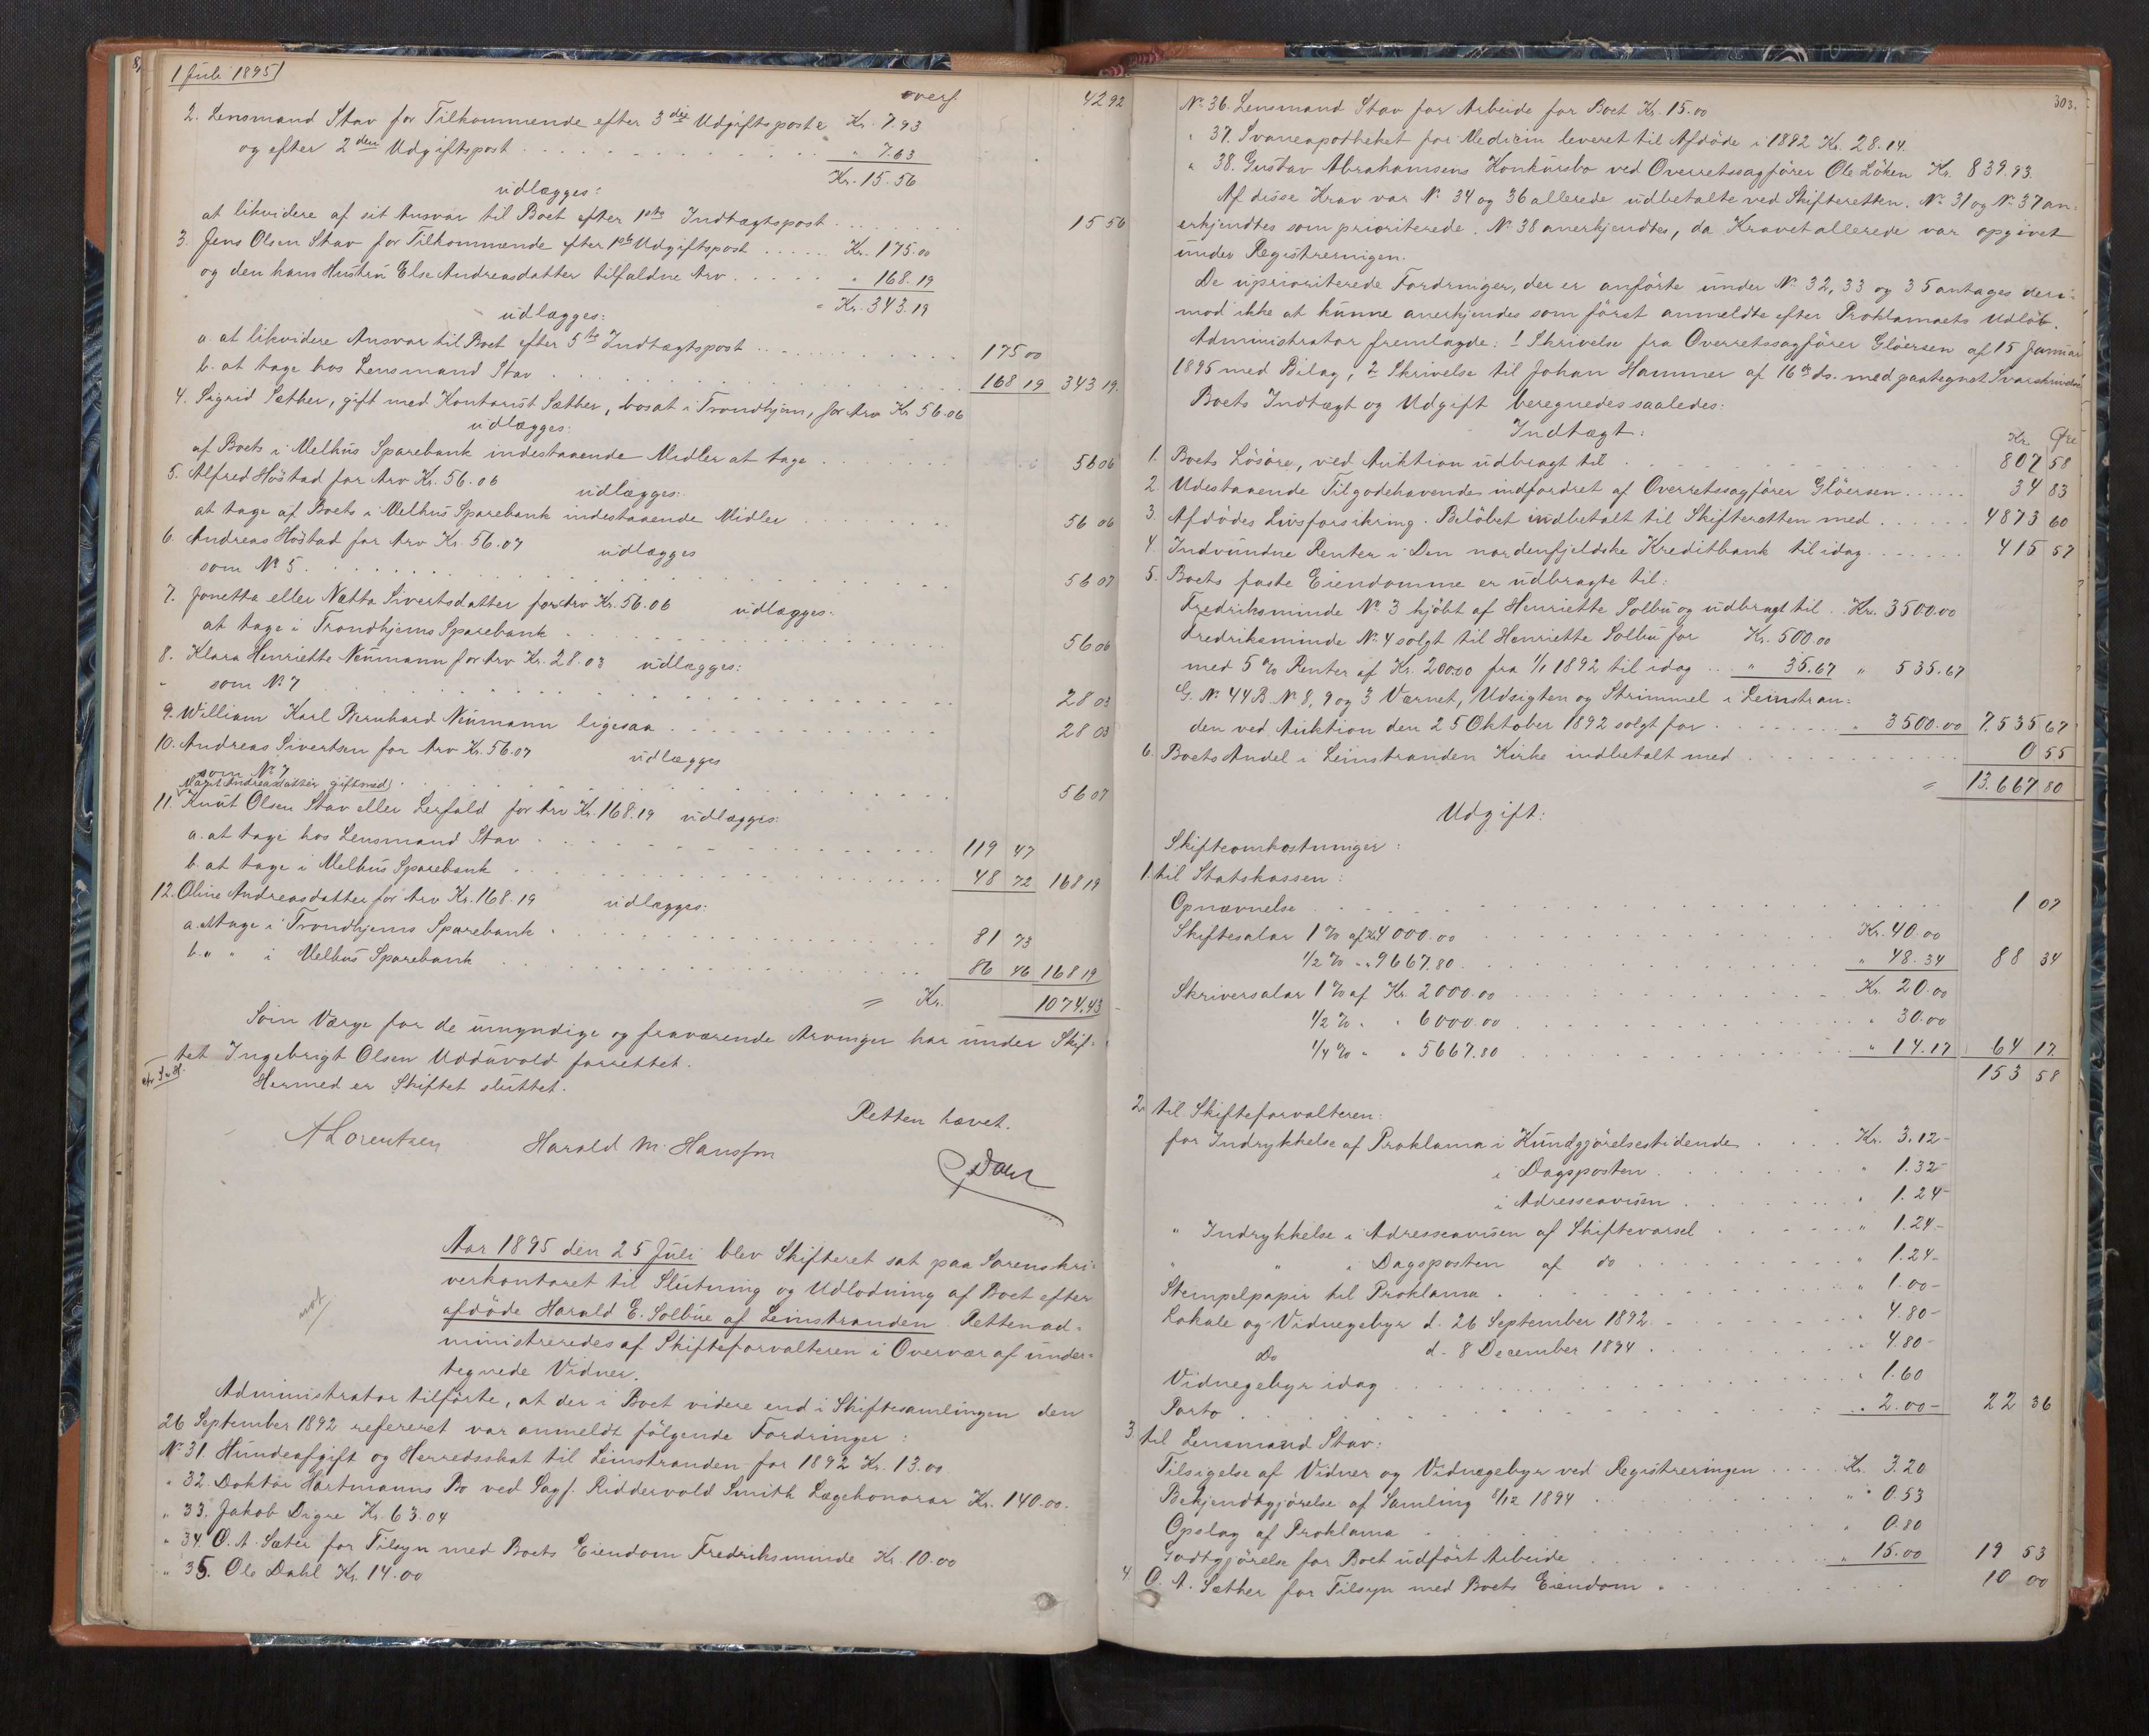 1 Juli 1895
overf. 42 92
2. Lensmand Stav for Tilkommende efter 3die Udgiftspost Kr. 7.93
og efter 2den Udgiftspost " 7.63
Kr. 15.56
udlægges:
at likvidere af sit Ansvar til Boet efter 1ste Indtægtspost 15 56
3. Jens Olsen Stav for Tilkommende efter 1ste Udgiftspost Kr. 175.00
og den hans Hustru Else Andreasdatter tilfaldne Arv " 168.19
Kr. 343.19
udlægges:
a. at likvidere Ansvar til Boet efter 5te Indtægtspost 175 00
b. at tage hos Lensmand Stav 168 19 343 19.
4. Sigrid Sæther, gift med Kontorist Sæther, bosat i Trondhjem, for Arv Kr 56.06
udlægges:
af Boets i Melhus Sparebank indestaaende Midler at tage 56 06
5. Alfred Höstad for Arv Kr. 56.06 udlægges:
at tage af Boets i Melhus Sparebank indestaaende Midler 56 06
6. Andreas Höstad for Arv Kr. 56.07 udlægges
som No 5 56 07
7. Jonetta eller Netta Sivertsdatter for Arv Kr. 56.06 udlægges:
at tage i Trondhjems Sparebank 56 06
8. Klara Henriette Neumann for Arv Kr. 28.03 udlægges:
som No 7 28 03
9. William Karl Bernhard Neumann ligesaa 28 03
10. Andreas Sivertsen for Arv Kr. 56.07 udlægges
som No 7 56 07
Marit Andreasdatter gift med
11. Knut Olsen Stav eller Lerfald for Arv Kr. 168.19 udlægges:
a. at tage hos Lensmand Stav 119 47
b. at tage i Melhus Sparebank 48 72 168 19
12. Oline Andreasdatter for Arv Kr. 168.19 udlægges:
a. at tage i Trondhjems Sparebank 81 73
b. " " i Melhus Sparebank 86 46 168 19
= Kr. 1074.43
Som Værge for de umyndige og fraværende Arvinger har under Skif-
tet Ingebrigt Olsen Udduvold forrettet.
Hermed er Skiftet sluttet.
Retten hævet.
A Lorentzen Harald M. Hansson
Aar 1895 den 25 Juli blev Skifteret sat paa Sorenskri-
verkontoret til Slutning og Udlodning af Boet efter
afdöde Harald E. Solbue af Leinstranden. Retten ad-
ministreredes af Skifteforvalteren i Overvær af under-
tegnede Vidner.
Administrator tilførte, at der i Boet videre end i Skiftesamlingen den
26 September 1892 refereret var anmeldt fölgende Fordringer:
No 31. Hundeafgift og Herredsskat til Leinstranden for 1892 Kr. 13.00
" 32 Doktor Hartmanns Bo ved Sagf. Riddervold Smith Lægehonorar Kr. 140.00.
" 33. Jakob Digre Kr. 63.04
" 34. O. A. Sæter for Tilsyn med Boets Eiendom Fredriksminde Kr. 10.00
" 35. Ole Dahl Kr. 14.00
303.
No 36. Lensmand Stav for Arbeide for Boet Kr. 15.00
" 37. Svaneapotheket for Medicin leveret til Afdöde i 1892 Kr. 28.14.
" 38. Gustav Abrahamsens Konkursbo ved Overretssagförer Ole Löken Kr. 839.93.
Af disse Krav var No 34 og 36 allerede udbetalte ved Skifteretten. No 31 og No 37 an-
erkjendtes som prioriterede. No 38 anerkjendtes, da Kravet allerede var opgivet
under Registreringen.
De uprioriterede Fordringer, der er anförte under No 32, 33 og 35 antages deri-
mod ikke at kunne anerkjendes som först anmeldte efter Proklamaets Udlöb.
Administrator fremlagde: 1 Skrivelse fra Overretssagförer Glöersen af 15 Januar
1895 med Bilag, 2 Skrivelse til Johan Hammer af 16de ds. med paategnet Svarskrivelse
Boets Indtægt og Udgift beregnedes saaledes:
Indtægt: Kr. Øre
1. Boets Lösöre, ved Auktion udbragt til 807 58
2. Udestaaende Tilgodehavende indfordret af Overretssagförer Glöersen 34 83
3. Afdödes Livsforsikring. Belöbet indbetalt til Skifteretten med 4873 60
4. Indvundne Renter i Den nordenfjeldske Kreditbank til idag 415 57
5. Boets faste Eiendomme er udbragte til:
Fredriksminde No 3 kjöbt af Henriette Solbu og udbragt til Kr. 3500.00
Fredriksminde No 4 solgt til Henriette Solbu for Kr. 500.00
med 5 % Renter af Kr. 200.00 fra 1/1 1892 til idag " 35.67 " 535.67
G. No 44 B. No 8, 9 og 3 Værnet, Udsigten og Strimmel i Leinstran-
den ved Auktion den 25 Oktober 1892 solgt for " 3500.00 7.535 67
6. Boets Andel i Leinstranden Kirke indbetalt med 0 55
= 13.667 80
Udgift:
Skifteomkostninger:
1. til Statskassen:
Opnævnelse 1 07
Skiftesalar 1 % af Kr 4000.00 Kr. 40.00
1/2 % " " 9667.80 " 48.34 88 34
Skriversalar 1 % af Kr. 2000.00 Kr. 20.00
1/2 % " " 6000.00 " 30.00
1/4 % " " 5667.80 " 14.17 64 17
153 58
2. til Skifteforvalteren:
for Indrykkelse af Proklama i Kundgjörelsestidende Kr. 3.12
i Dagsposten " 1.32
i Adresseavisen " 1.24
" Indrykkelse i Adresseavisen af Skiftevarsel " 1.24
" " i Dagsposten af do " 1.24
Stempelpapir til Proklama " 1.00
Lokale og Vidnegebyr d. 26 September 1892 " 4.80
Do d. 8 December 1894 " 4.80
Vidnegebyr idag " 1.60
Porto " 2.00 22 36
3. til Lensmand Stav:
Tilsigelse af Vidner og Vidnegebyr ved Registreringen Kr. 3.20
Bekjendtgjörelse af Samling 8/12 1894 " 0.53
Opslag af Proklama " 0.80
Godtgjörelse for Boet udfört Arbeide " 15.00 19 53
4. O. A. Sæther for Tilsyn med Boets Eiendom 10 00